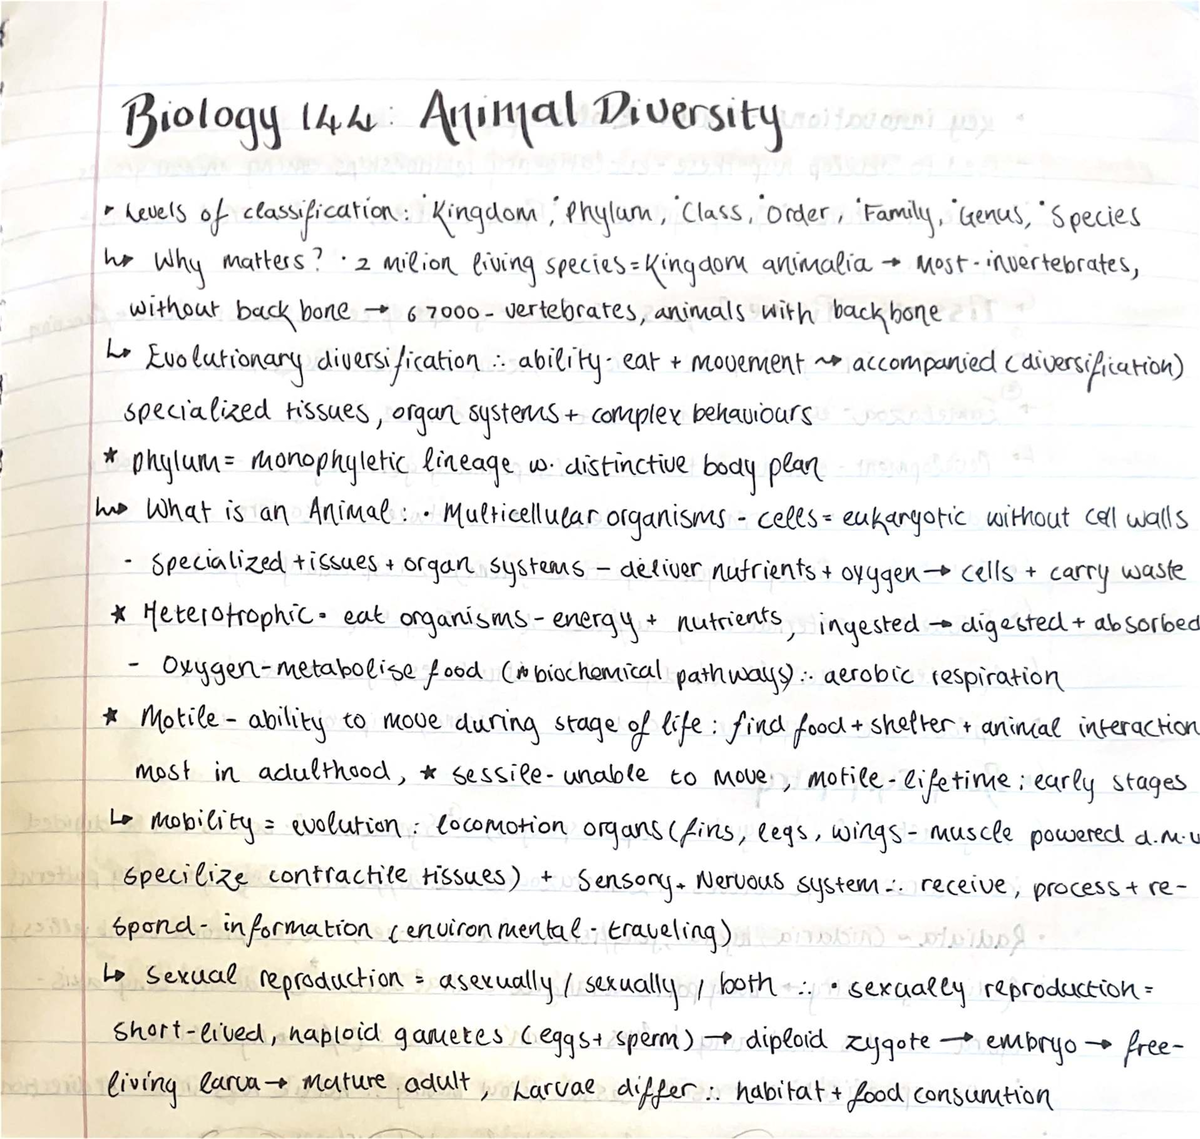 Biology 144: Animal Diversity
▸ Levels of classification: •Kingdom, •Phylum, •Class, •Order, •Family, •Genus, •Species
↳ Why matters? • 2 milion living species = Kingdom animalia → Most - invertebrates,
without back bone → 67000 - vertebrates, animals with backbone
↳ Evolutionary diversification ∴ ability - eat + movement ⇝ accompanied (diversification)
specialized tissues, organ systems + complex behaviours
* phylum = monophyletic lineage w. distinctive body plan
↳ What is an Animal: • Multicellular organisms - cells = eukaryotic without cell walls
- specialized tissues + organ systems - deliver nutrients + oxygen → cells + carry waste
* Heterotrophic = eat organisms - energy + nutrients, ingested → digested + absorbed
- Oxygen - metabolise food (biochemical pathways) ∴ aerobic respiration
* Motile - ability to move during stage of life : find food + shelter + animal interaction
most in adulthood, * sessile - unable to move, motile - lifetime : early stages
↳ mobility = evolution : locomotion organs (fins, legs, wings - muscle powered d.m.u
specilize contractile tissues) + Sensory + Nervous system ∴ receive, process + re-
spond - information (environmental - traveling)
↳ Sexual reproduction = asexually / sexually / both ∴ • sexually reproduction =
short-lived, haploid gametes (eggs + sperm) → diploid zygote → embryo → free-
living larva → mature adult, Larvae differ ∴ habitat + food consumtion